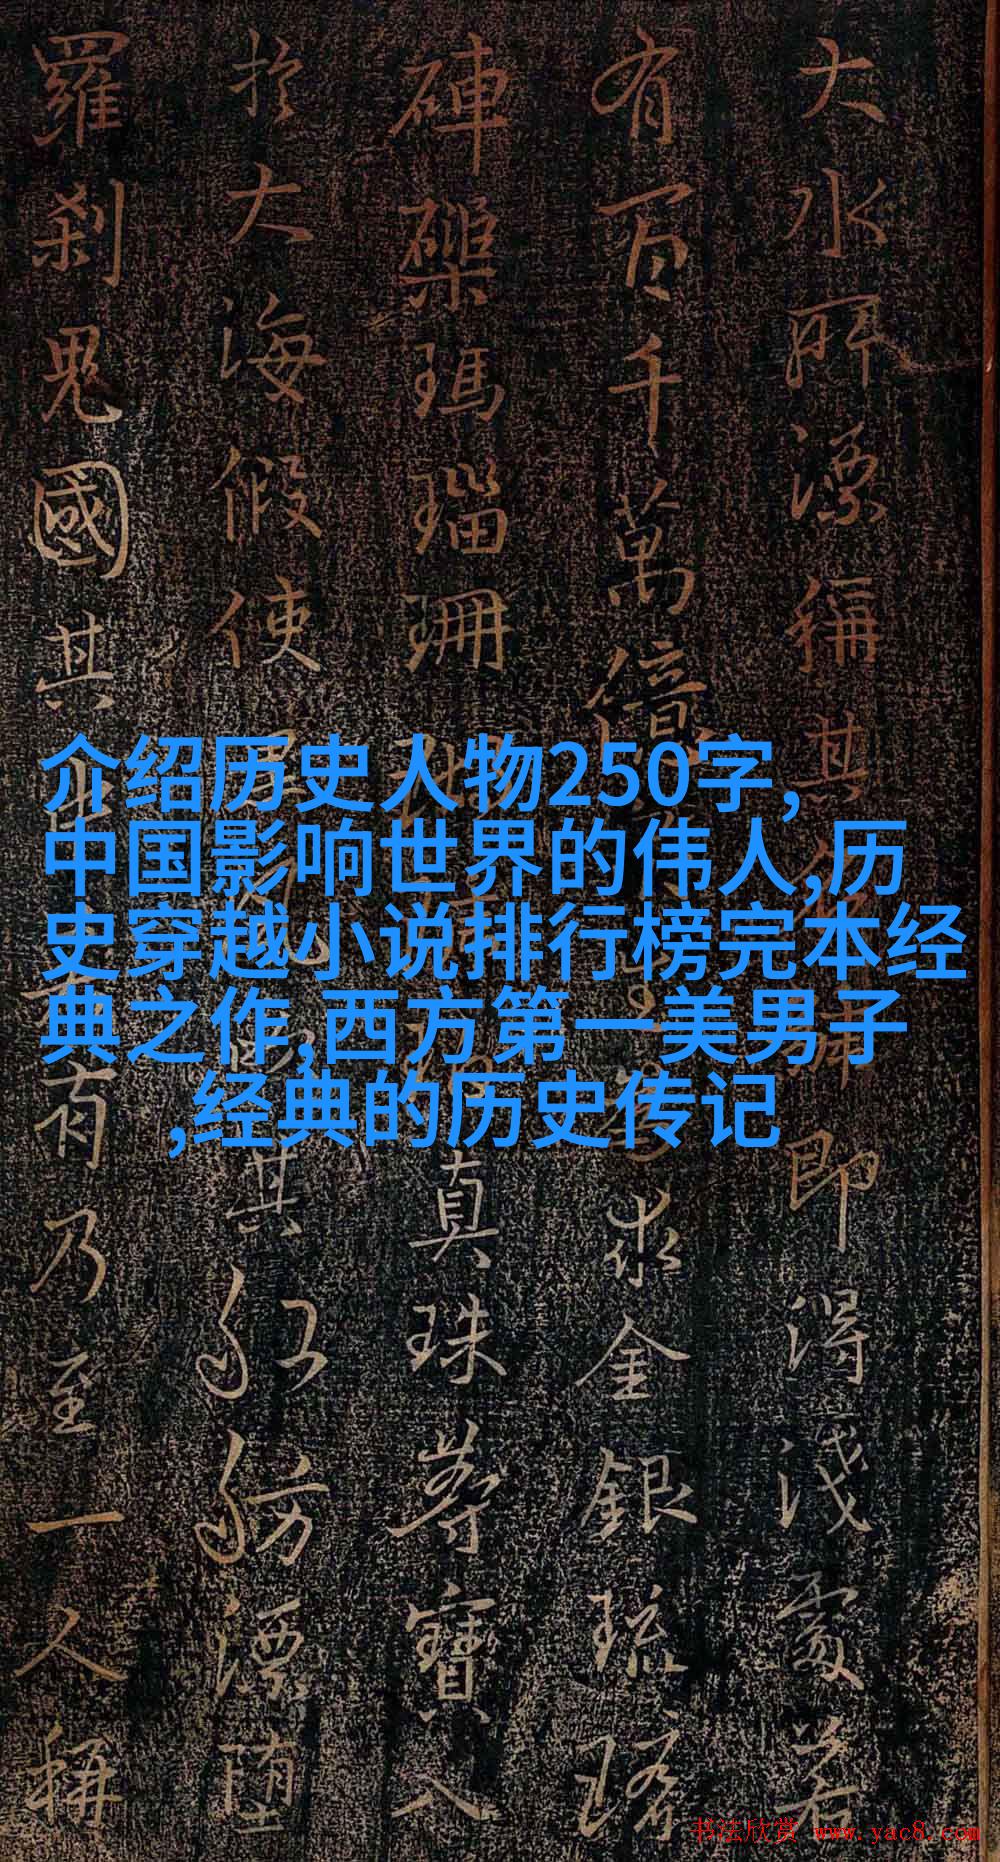 大水所漂稱其即得淺處若
有百千萬億求金銀琉璃
硨磲瑪瑙珊真珠等寶入
於大海假使其舡舫漂墮
羅剎鬼國其有乃至一人稱
介绍历史人物250字,
中国影响世界的伟人,历
史穿越小说排行榜完本经
典之作,西方第一美男子
,经典的历史传记
书法欣赏 www.yac8.com